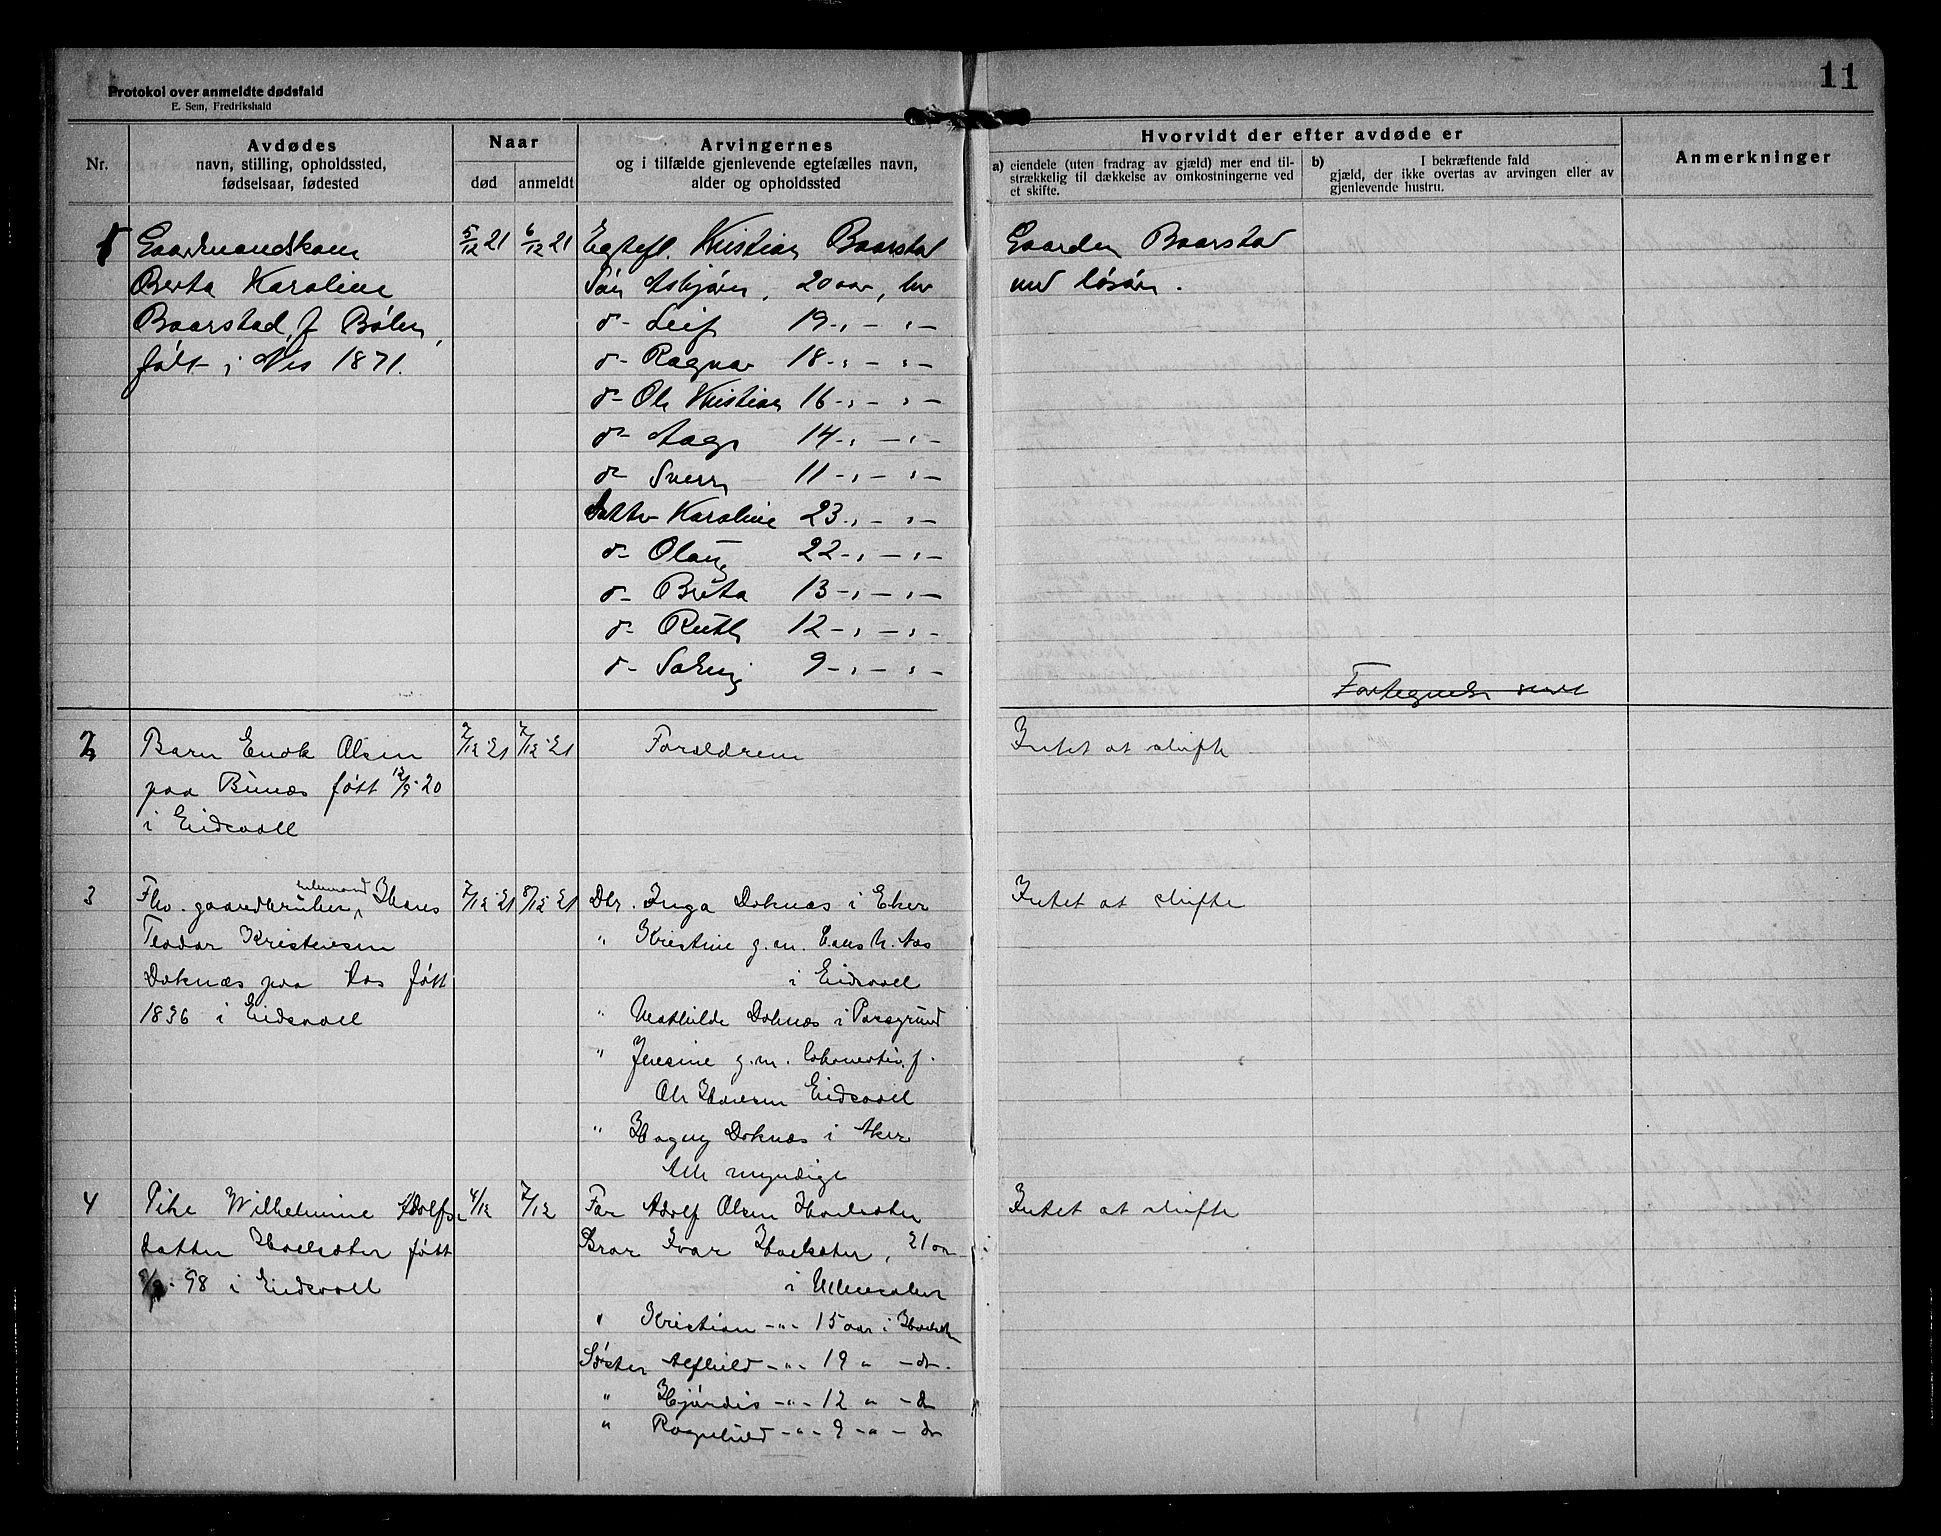 11
Protokol over anmeldte dødsfald
E. Sem, Fredrikshald
Nr.
Avdødes
navn, stilling, opholdssted,
fødselsaar, fødested
Naar
død
anmeldt
Arvingernes
og i tilfælde gjenlevende egtefælles navn,
alder og opholdssted
Hvorvidt der efter avdøde er
a) eiendele (uten fradrag av gjæld) mer end til-
strækkelig til dækkelse av omkostningerne ved
et skifte.
b) I bekræftende fald
gjæld, der ikke overtas av arvingen eller av
gjenlevende hustru.
Anmerkninger
1 Gaardmandskone 5/12 21 6/12 21 Egtefl. Kristian Baarstad Gaarden Baarstad
Berta Karoline Søn Asbjørn, 20 aar, her med løsøre.
Baarstad, f. Bølen, d- Leif 19 -,- ,-
født i Nes 1871. d- Ragnar 18 -,- ,-
d- Ole Kristian 16 -,- ,-
d- Aage 14 -,- ,-
d- Sverre 11 -,- ,-
Datter Karoline 23 -,- ,-
d- Olaug 22 -,- ,-
d- Berta 13 -,- ,-
d- Ruth 12 -,- ,-
d- Solveig 9 -,- ,-
Fortegnelse sendt
2 Barn Enok Olsen 2/12 21 7/12 21 Forældrene Intet at skifte
paa Bunæs født 12/9 20
i Eidsvoll
3 Fhv. gaardbruker, enkemand Hans 7/12 21 8/12 21 Dtr. Inga Doknæs i Eker Intet at skifte
Teodor Kristensen " Kristine g. m. Hans H. Aas
Doknæs paa Aas født i Eidsvoll
1836 i Eidsvoll " Mathilde Doknæs i Porsgrund
" Jensine g. m. lokomotivf.
Ole Hansen Eidsvoll
" Hagny Doknæs i Aker
Alle myndige
4 Pike Wilhelmine Adolfs- 4/12 7/12 Far Adolf Olsen Hoelsæter Intet at skifte
datter Hoelsæter født Bror Ivar Hoelsæter, 21 aar
98 i Eidsvoll i Ullensaker
" Kristian -"- 15 aar i Hoelsæter
Søster Alfhild -"- 19 " - do.
" Hjørdis -"- 12 " - do
" Ragnhild -"- 9 -"- do